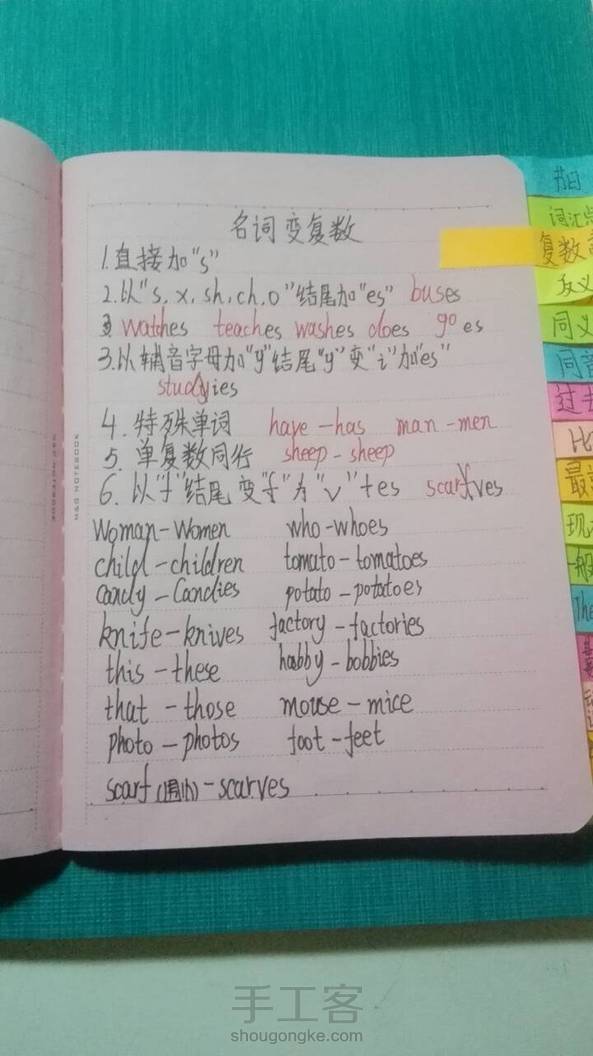 名词变复数
1.直接加"s"
2.以"s,x,sh,ch,o"结尾加"es" buses
watches teaches washes does goes
3.以辅音字母加"y"结尾"y"变"i"加"es"
studyies
4.特殊单词 have-has man-men
5.单复数同行 sheep-sheep
6.以"f"结尾变"f"为"v"+es scarfves
Woman-Women who-whoes
child-children tomato-tomatoes
candy-Candies potato-potatoes
knife-knives factory-factories
this-these habby-bobbies
that-those mouse-mice
photo-photos foot-feet
scarf(围巾)-scarves
节日
词汇
复数
反义
同义
同音
过去
比
最
现
一般
The
M&G NOTEBOOK
手工客
shougongke.com